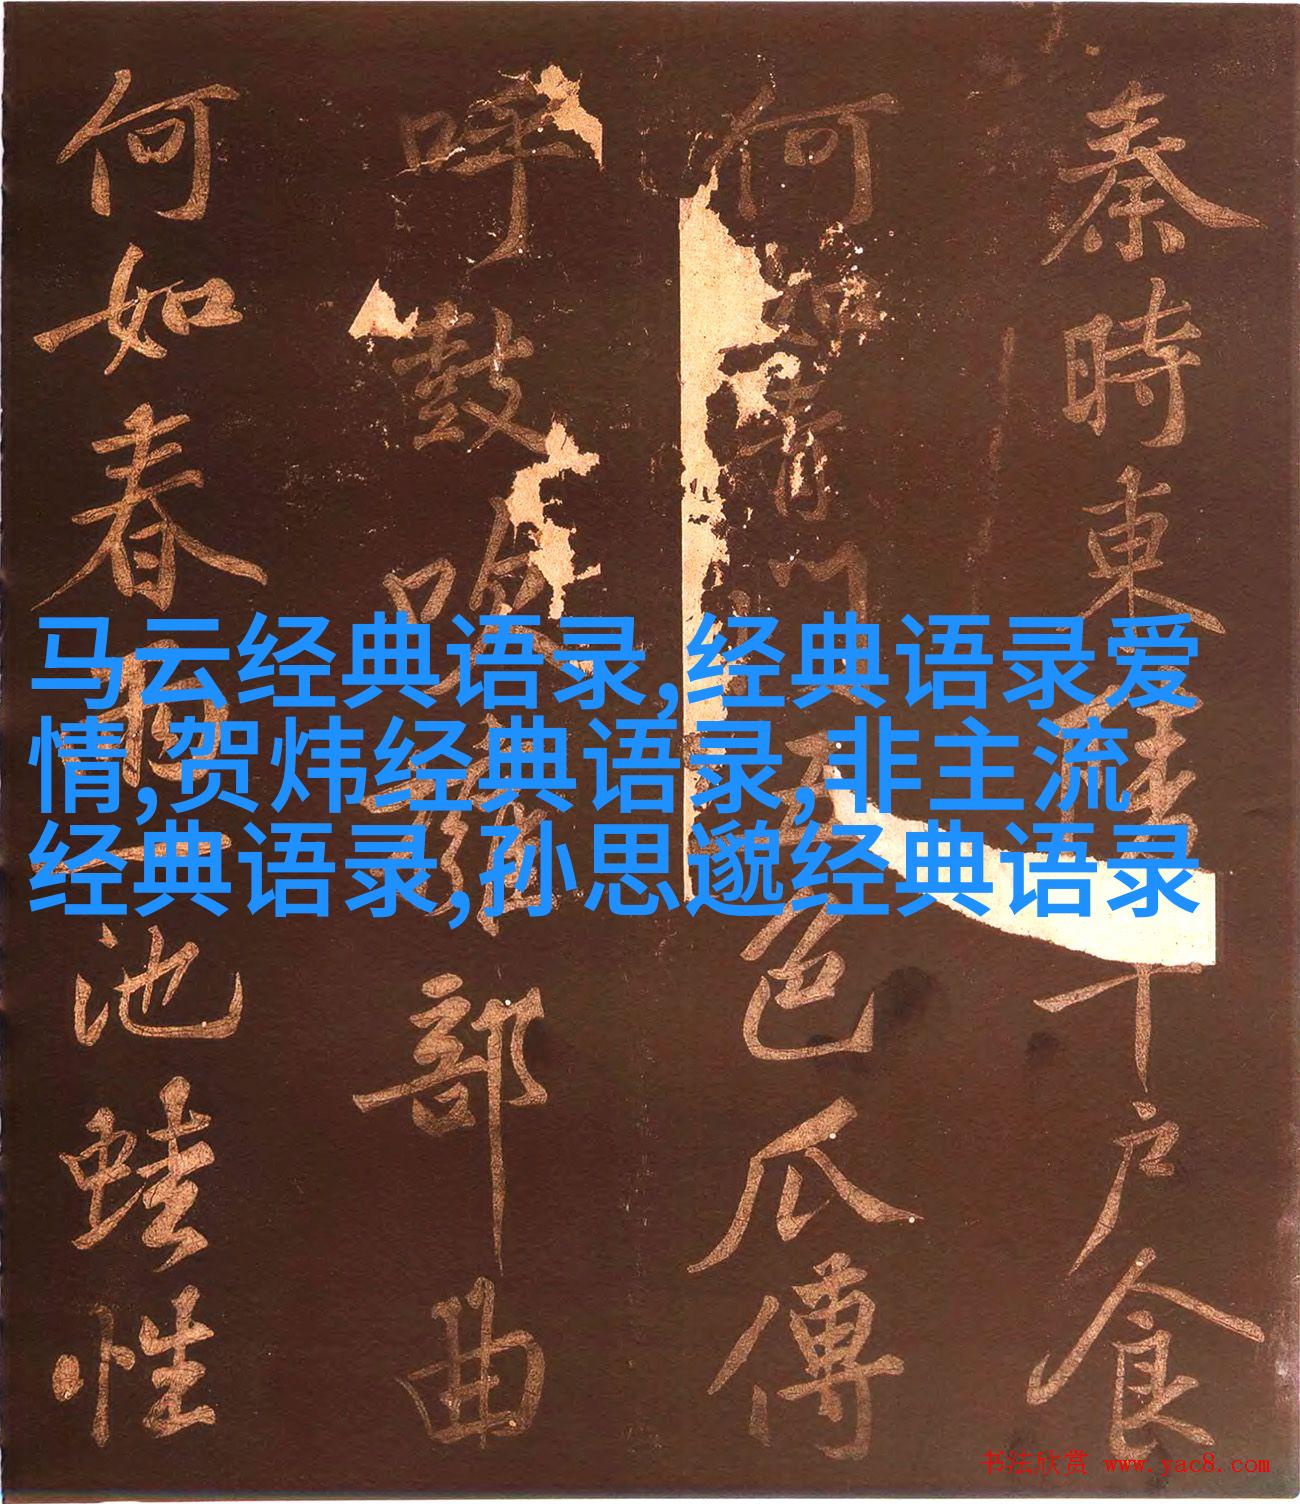 秦時東陵千戶食
何如青門五色瓜傳
呼鼓吹部曲
何如春雨池蛙性
马云经典语录,经典语录爱
情,贺炜经典语录,非主流
经典语录,孙思邈经典语录
书法欣赏 www.yac8.com